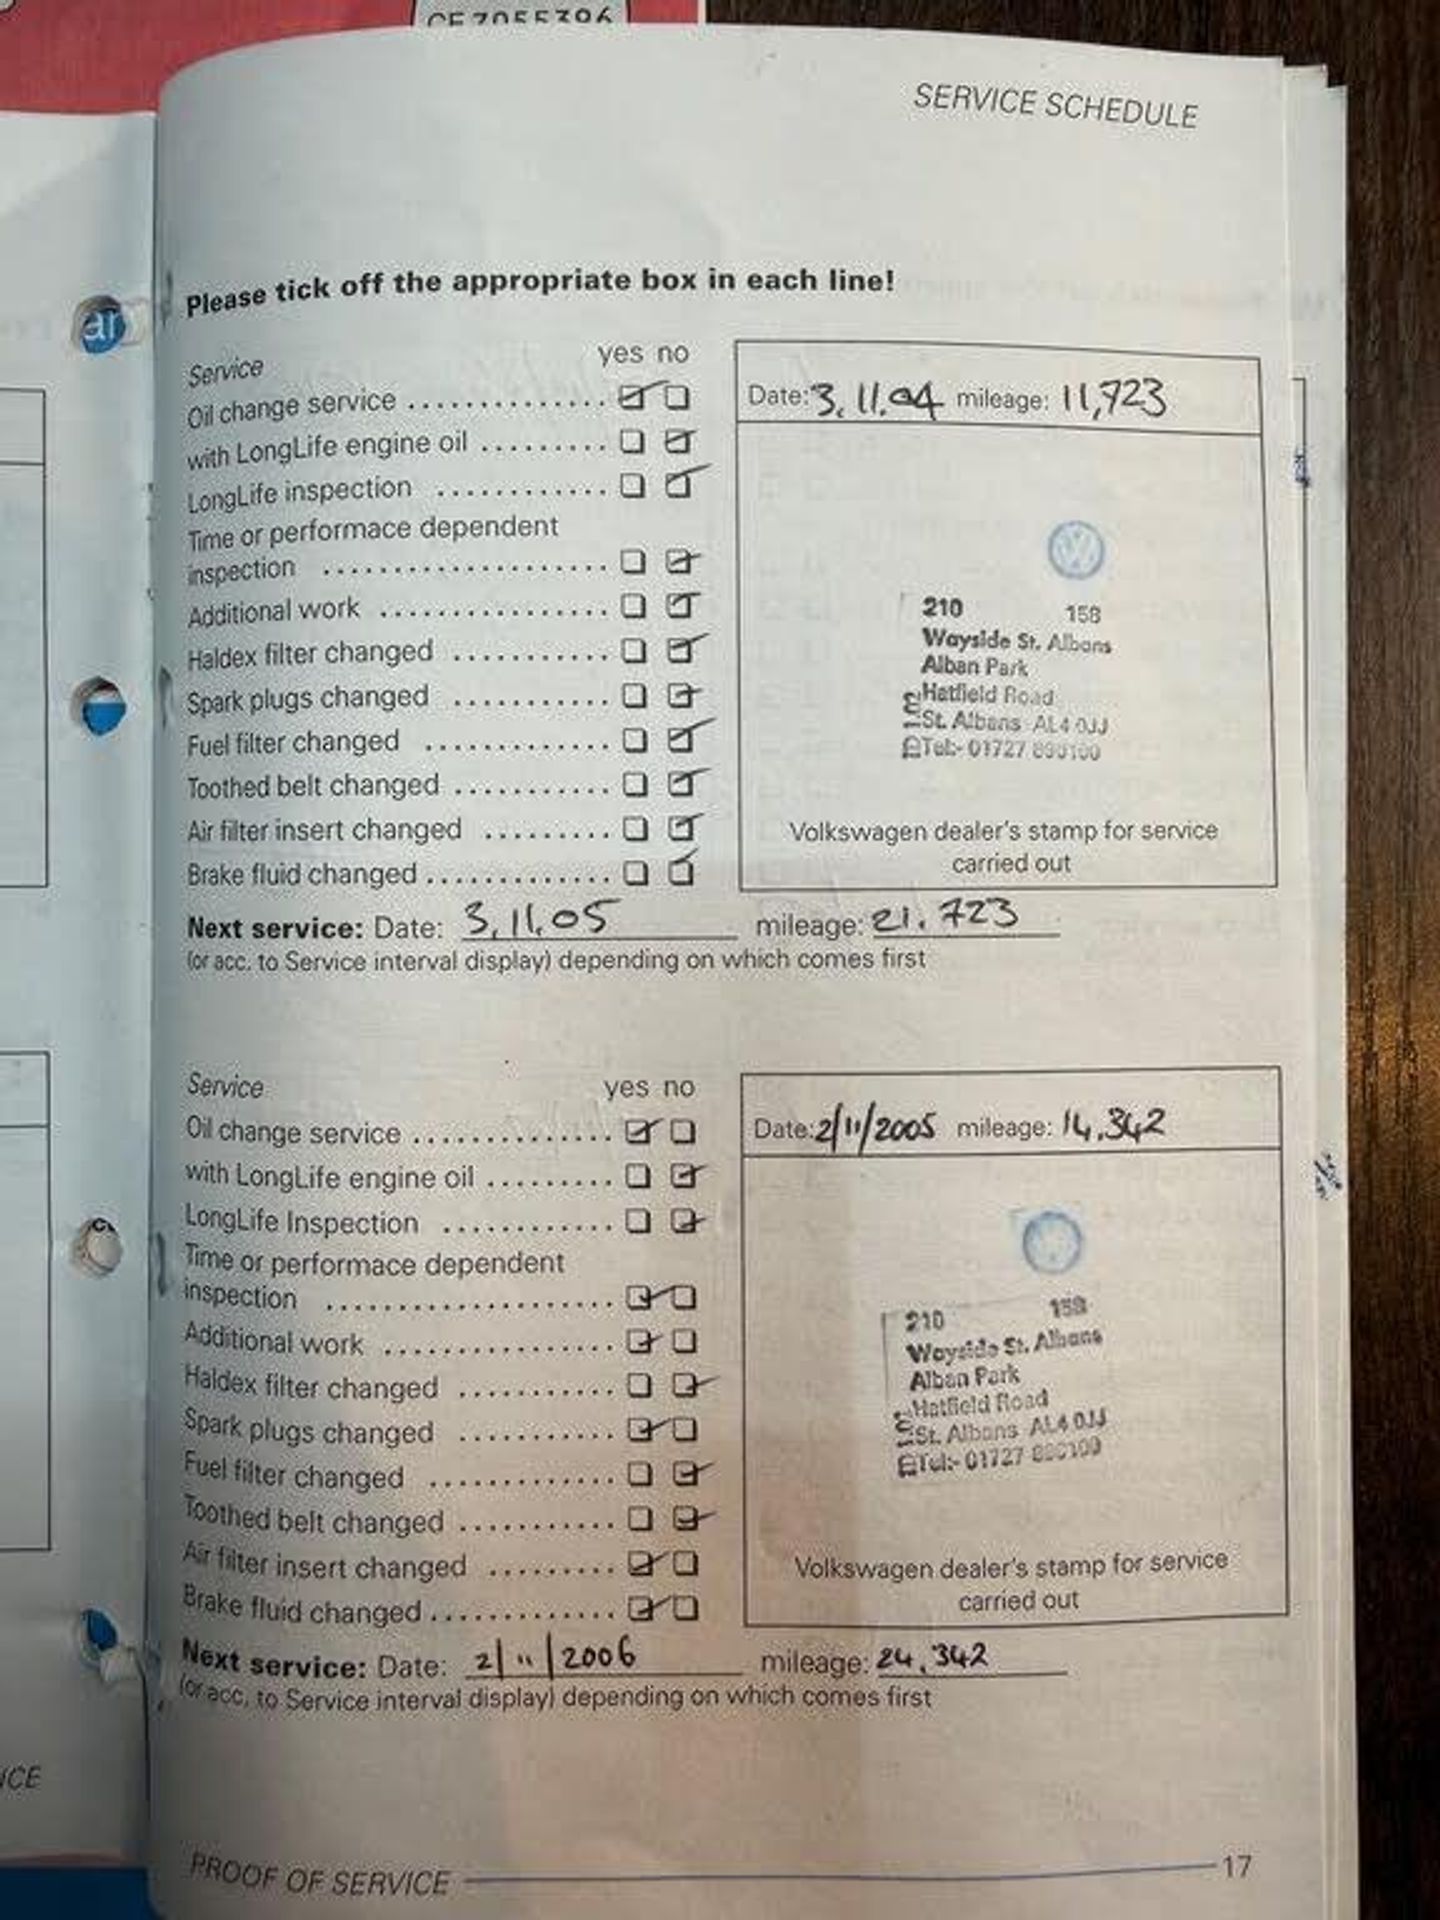 SERVICE SCHEDULE
Please tick off the appropriate box in each line!
Service yes no
Oil change service
with LongLife engine oil
LongLife inspection
Time or performace dependent
inspection
Additional work
Haldex filter changed
Spark plugs changed
Fuel filter changed
Toothed belt changed
Air filter insert changed
Brake fluid changed
Date: 3.11.04 mileage: 11,723
210 158
Wayside St. Albans
Alban Park
Hatfield Road
St. Albans AL4 0JJ
Tel:- 01727
Volkswagen dealer's stamp for service
carried out
Next service: Date: 3.11.05 mileage: 21.723
(or acc. to Service interval display) depending on which comes first
Service yes no
Oil change service
with LongLife engine oil
LongLife Inspection
Time or performace dependent
inspection
Additional work
Haldex filter changed
Spark plugs changed
Fuel filter changed
Toothed belt changed
Air filter insert changed
Brake fluid changed
Date: 2/11/2005 mileage: 14,342
210 158
Wayside St. Albans
Alban Park
Hatfield Road
St. Albans AL4 0JJ
Tel:- 01727
Volkswagen dealer's stamp for service
carried out
Next service: Date: 2/11/2006 mileage: 24,342
(or acc. to Service interval display) depending on which comes first
PROOF OF SERVICE 17